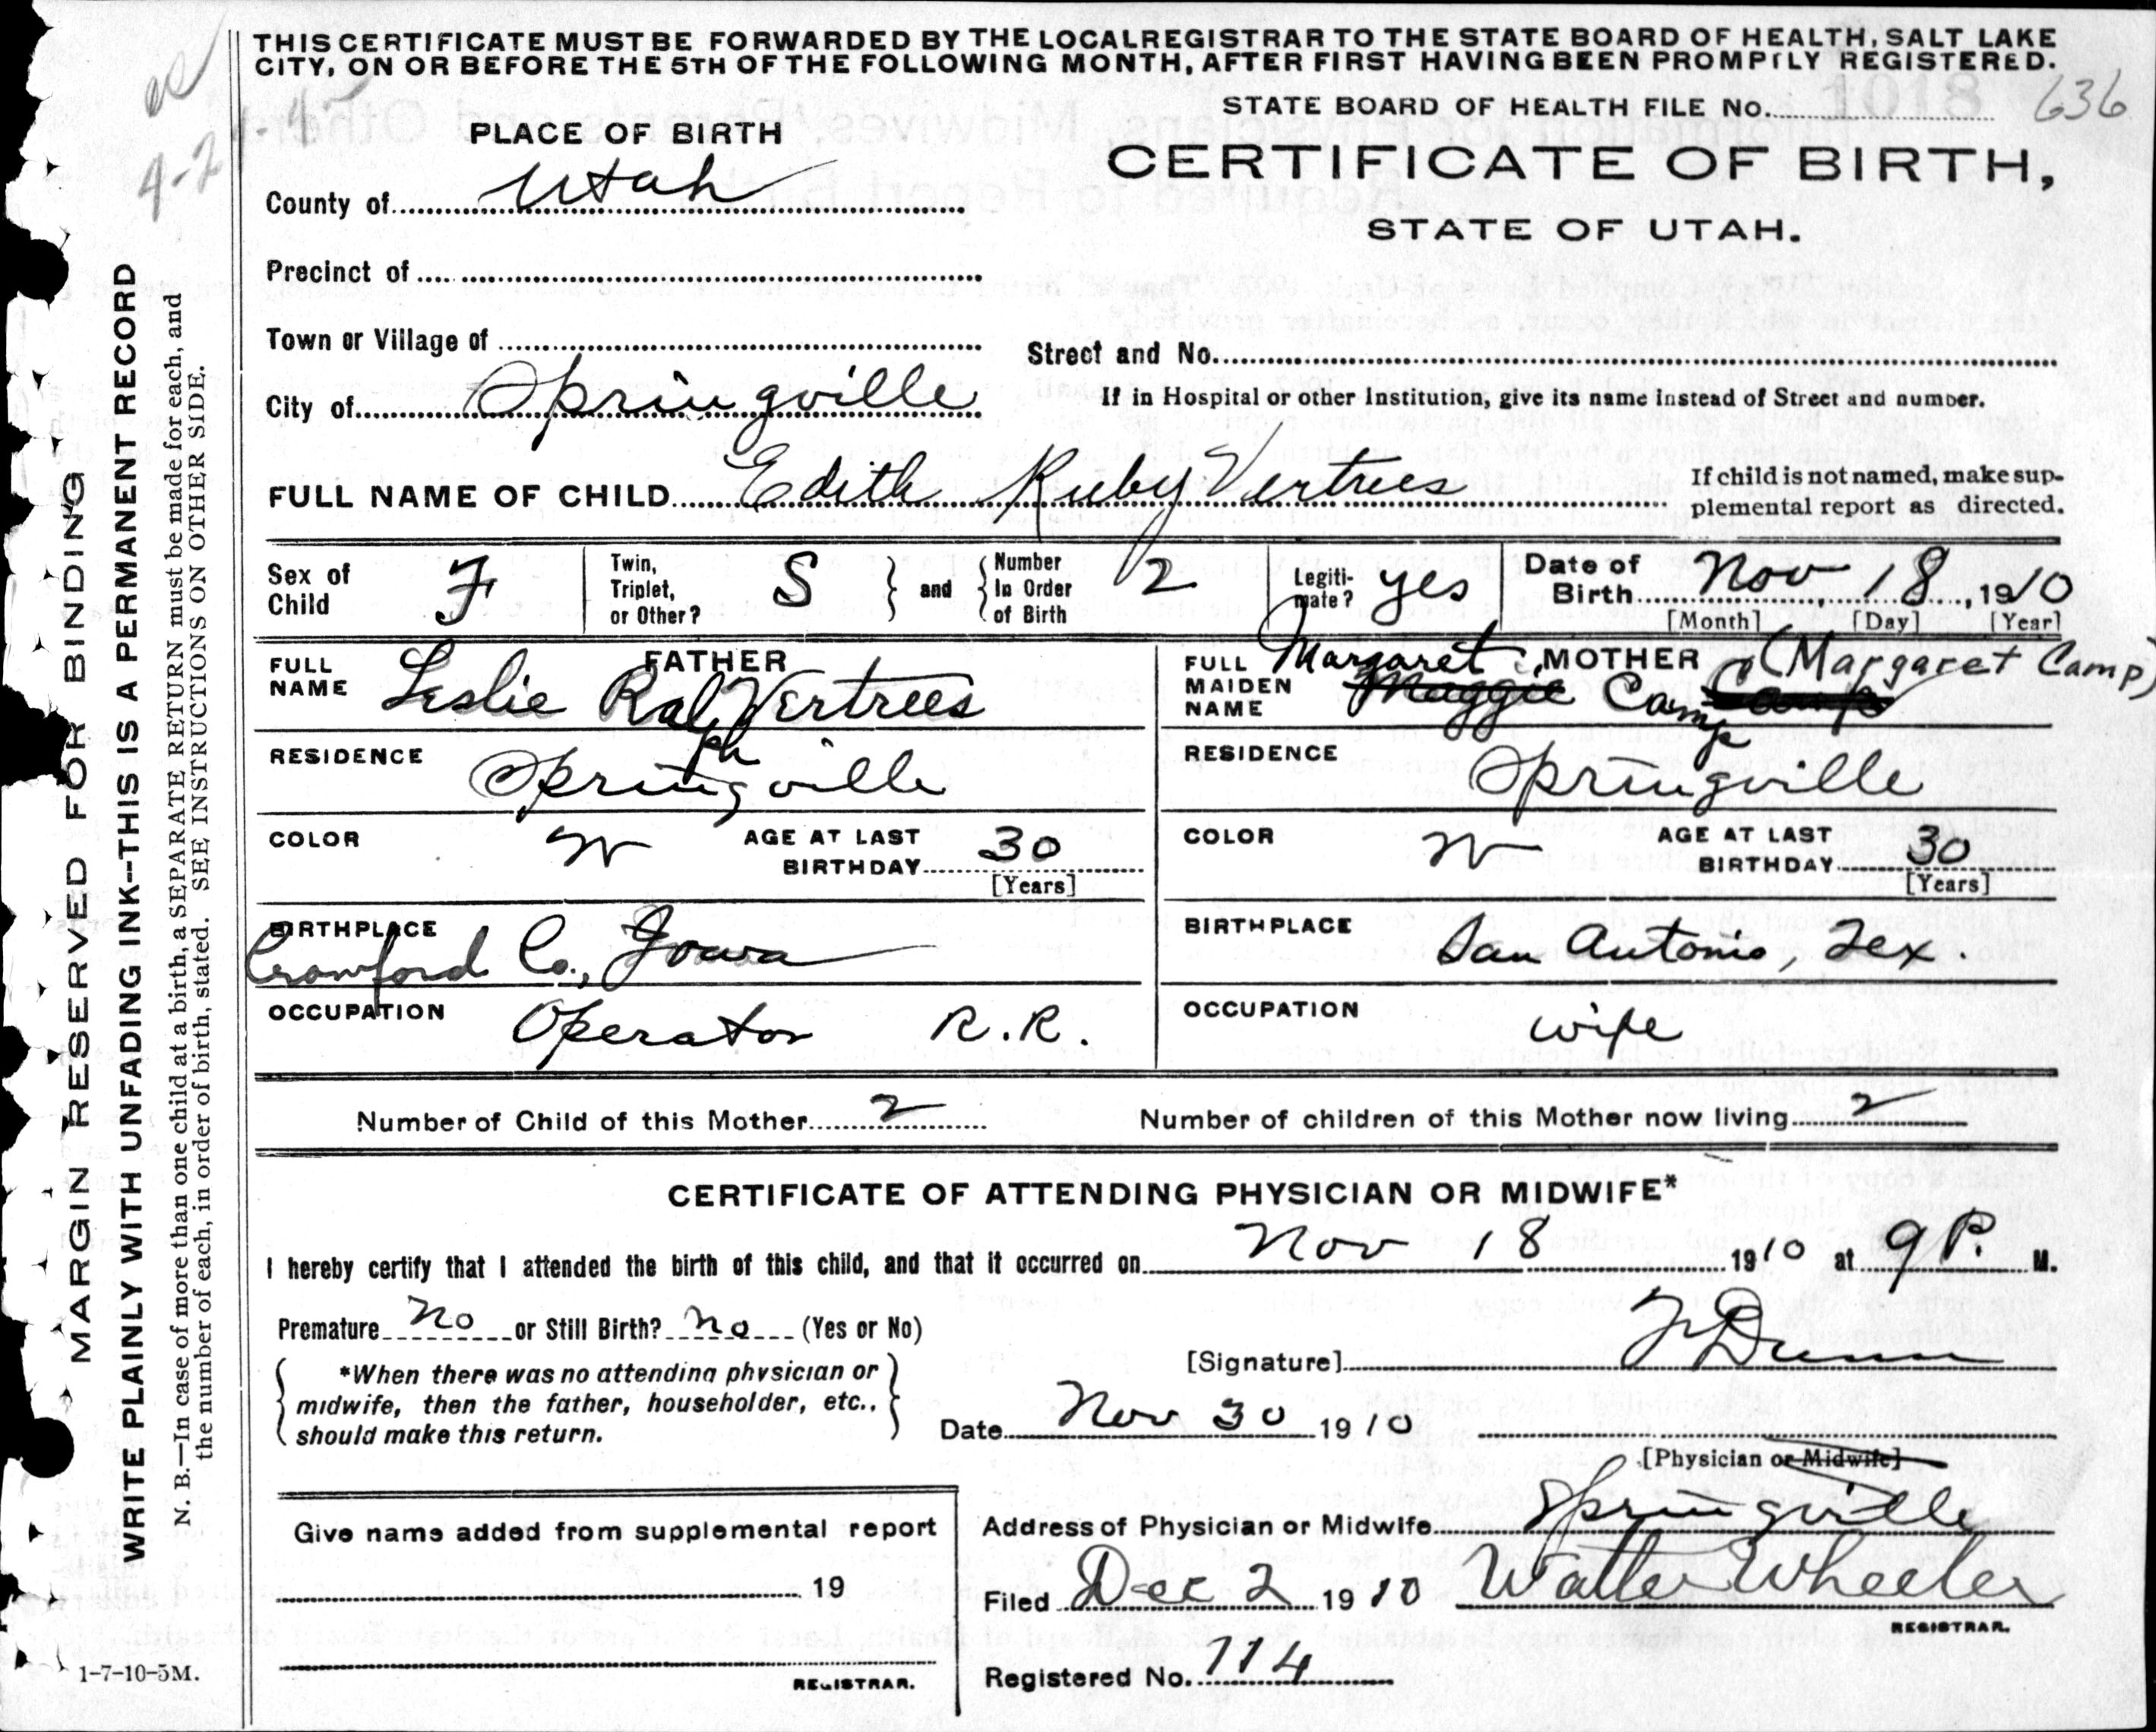 THIS CERTIFICATE MUST BE FORWARDED BY THE LOCAL REGISTRAR TO THE STATE BOARD OF HEALTH, SALT LAKE
CITY, ON OR BEFORE THE 5TH OF THE FOLLOWING MONTH, AFTER FIRST HAVING BEEN PROMPTLY REGISTERED.
STATE BOARD OF HEALTH FILE No. 1018 636
PLACE OF BIRTH
CERTIFICATE OF BIRTH,
STATE OF UTAH.
County of Utah
Precinct of
Town or Village of
Street and No.
City of Springville
If in Hospital or other Institution, give its name instead of Street and number.
FULL NAME OF CHILD Edith Ruby Vertrees
If child is not named, make sup-
plemental report as directed.
Sex of Child F
Twin, Triplet, or Other? S and Number In Order of Birth 2
Legiti-mate? yes
Date of Birth Nov 18, 1910
[Month] [Day] [Year]
FATHER
FULL NAME Leslie Ralph Vertrees
RESIDENCE Springville
COLOR W AGE AT LAST BIRTHDAY 30
[Years]
BIRTHPLACE Crawford Co., Iowa
OCCUPATION Operator R.R.
MOTHER
FULL MAIDEN NAME Margaret Maggie Camp Camp (Margaret Camp)
RESIDENCE Springville
COLOR W AGE AT LAST BIRTHDAY 30
[Years]
BIRTHPLACE San Antonio, Tex.
OCCUPATION wife
Number of Child of this Mother 2 Number of children of this Mother now living 2
CERTIFICATE OF ATTENDING PHYSICIAN OR MIDWIFE*
I hereby certify that I attended the birth of this child, and that it occurred on Nov 18 1910 at 9 P. M.
Premature No or Still Birth? No (Yes or No)
*When there was no attending physician or
midwife, then the father, householder, etc.,
should make this return.
[Signature] Dunn
Date Nov 30 1910
[Physician or Midwife]
Give name added from supplemental report
19
REGISTRAR.
Address of Physician or Midwife Springville
Filed Dec 2 1910 Walter Wheeler
REGISTRAR.
Registered No. 114
MARGIN RESERVED FOR BINDING
WRITE PLAINLY WITH UNFADING INK--THIS IS A PERMANENT RECORD
N. B.—In case of more than one child at a birth, a SEPARATE RETURN must be made for each, and
the number of each, in order of birth, stated. SEE INSTRUCTIONS ON OTHER SIDE.
1-7-10-5M.